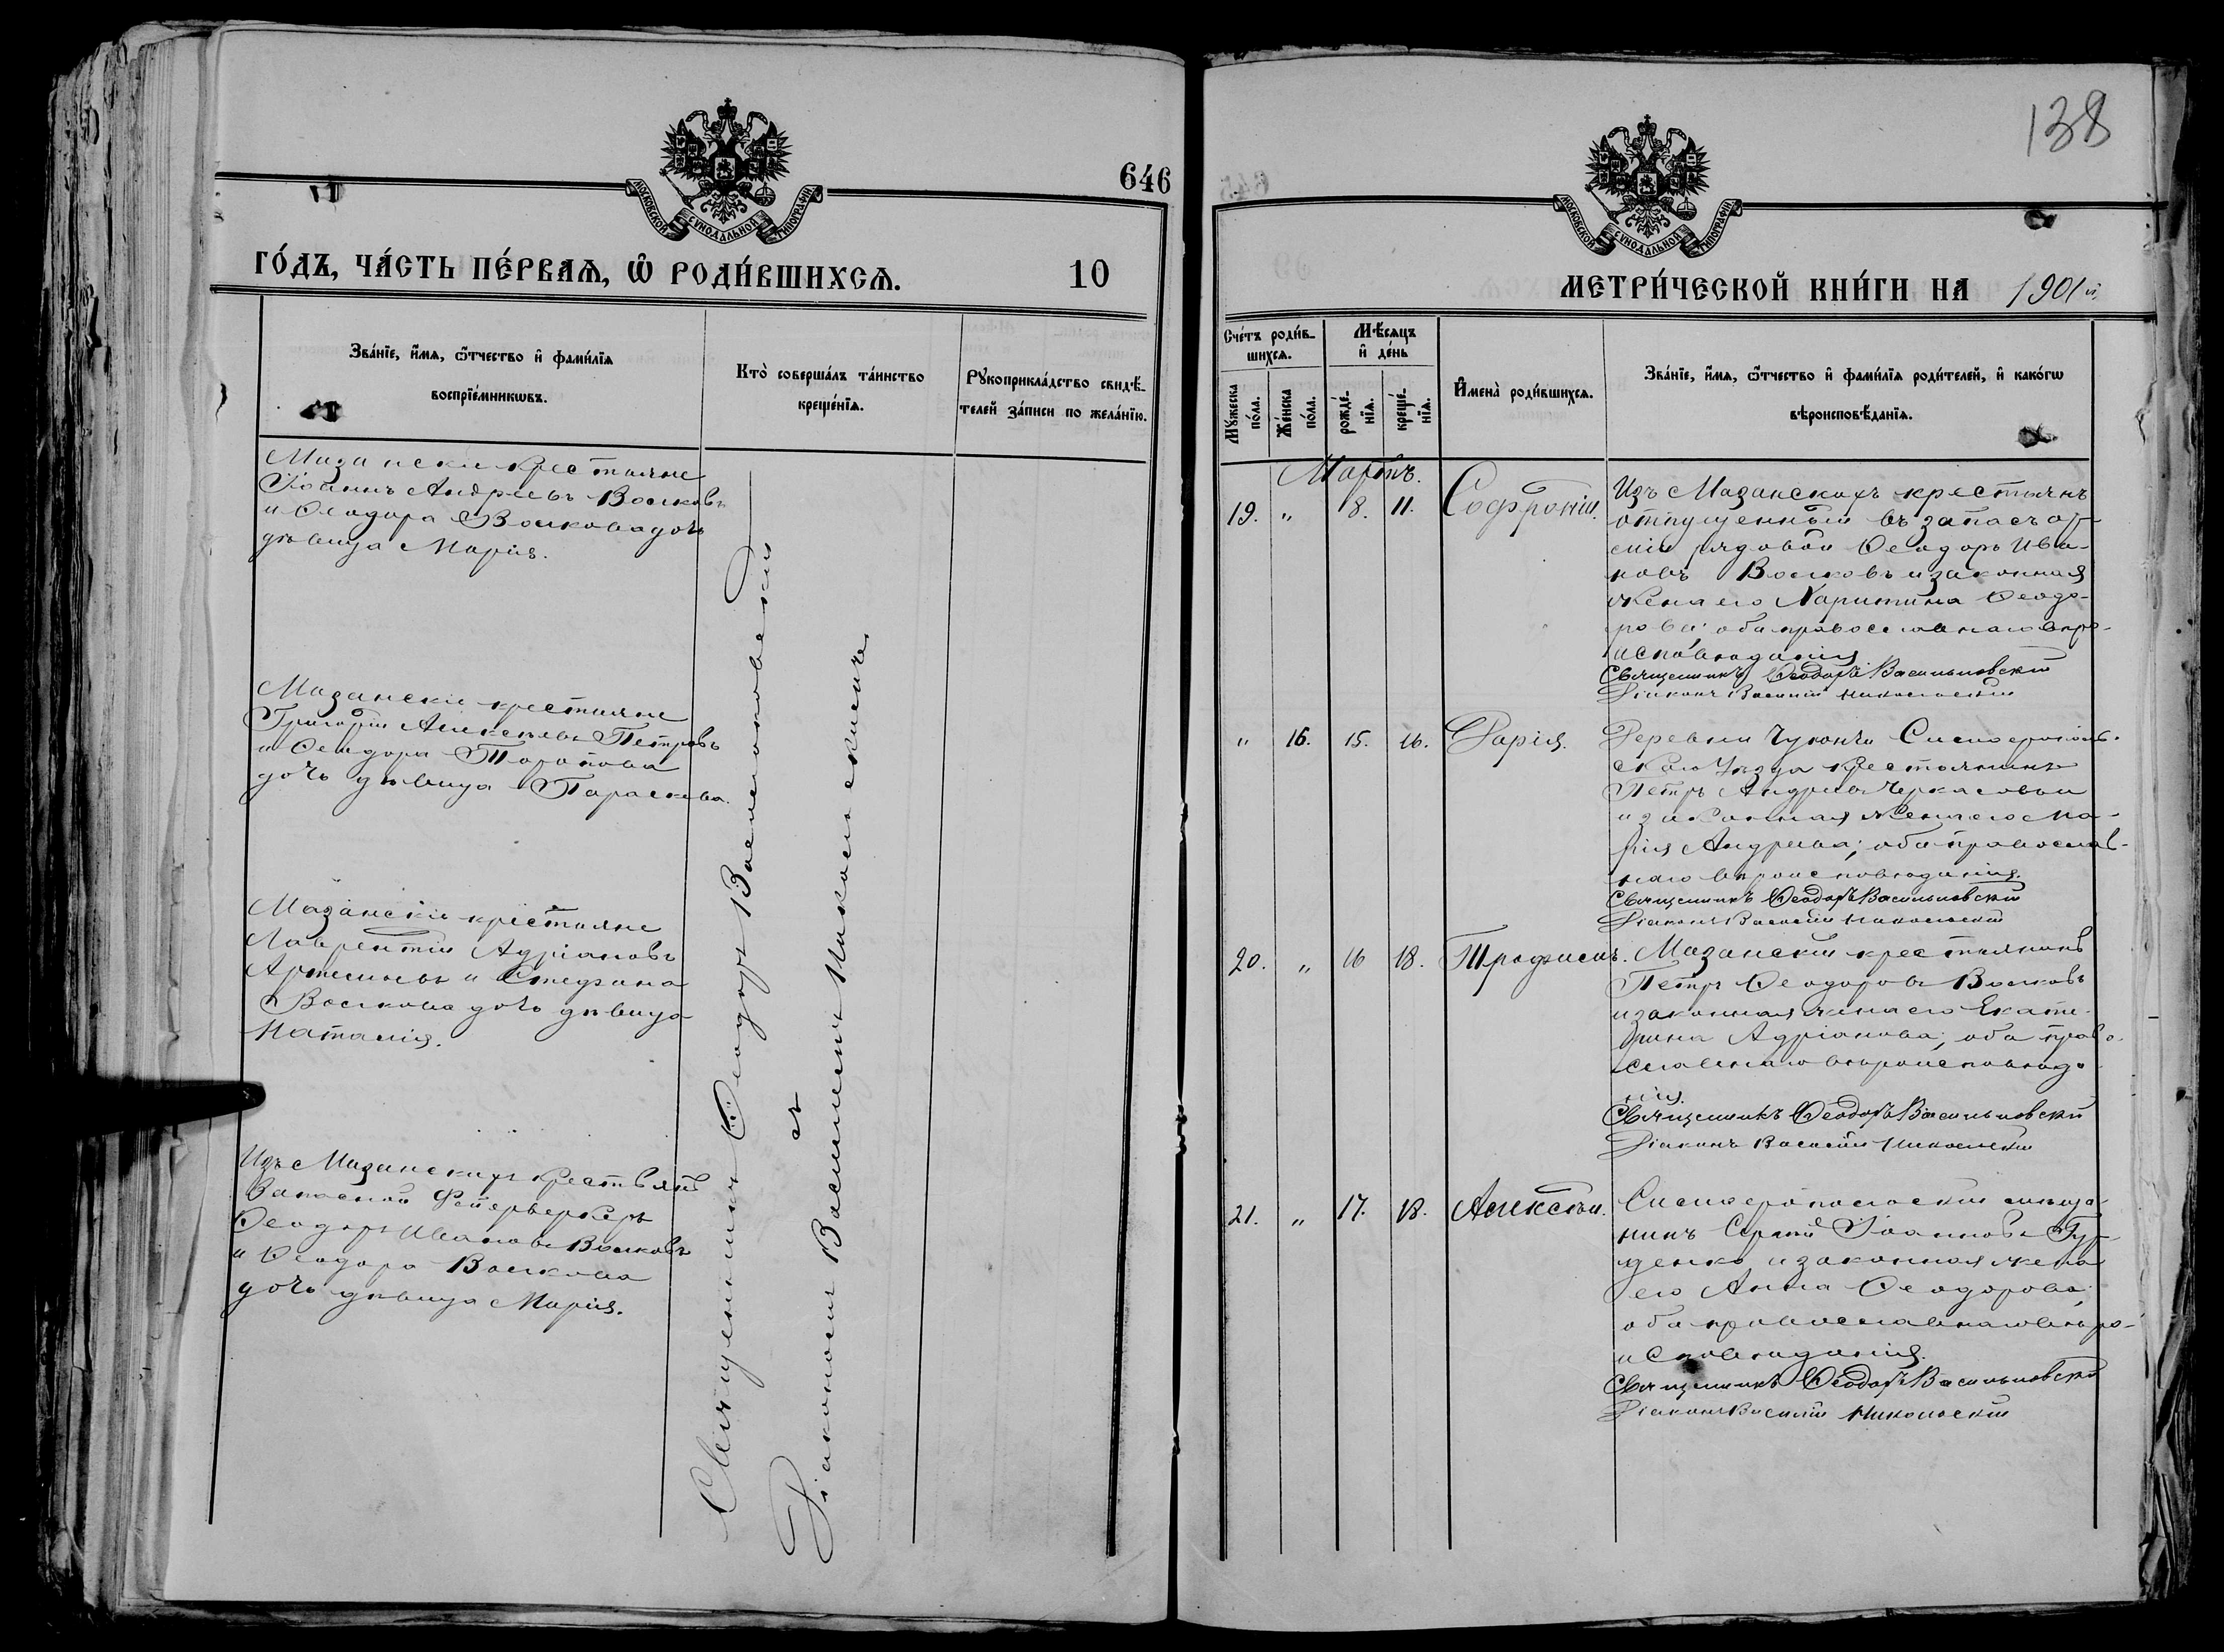 МОСКОВСКОЙ СѴНОДАЛЬНОЙ ТИПОГРАФІИ
646
ГО́ДЪ, ЧА́СТЬ ПЕ́РВАѦ, Ѡ҆ РОДИ́ВШИХСѦ.
10
Зва́нїе, и҆́мѧ, ѻ҆́тчество и҆ фамилїѧ
воспрїе́мникѡвъ.
Кто̀ соверша́лъ та́инство
креще́нїѧ.
Рꙋкоприкла́дство свидѣ́-
телей за́писи по жела́нїю.
Мазанскіе крестьяне
Іоаннъ Андреевъ Волковъ
и Ѳеодора Волкова дочь
дѣвица Марія.
Мазанскіе крестьяне
Григорій Алексѣевъ Петровъ
и Ѳеодора Торопова
дочь дѣвица Параскева.
Мазанскіе крестьяне
Лаврентій Адріановъ
и Стефана
Волкова дочь дѣвица
Наталія.
Изъ Мазанскихъ крестьянъ
Запасной Фейерверкеръ
Ѳеодоръ Ивановъ Волковъ
и Ѳеодора Волкова
дочь дѣвица Марія.
Священникъ Ѳеодоръ Васильковскій
съ
Діакономъ Василіемъ Никольскимъ
138
МОСКОВСКОЙ СѴНОДАЛЬНОЙ ТИПОГРАФІИ
МЕТРИ́ЧЕСКОЙ КНИ́ГИ НА 1901й
Сче́тъ роди́в-
шихсѧ.
Мꙋ́жеска по́ла.
Же́нска по́ла.
Мѣ́сѧцъ
и҆ де́нь
рожде́-
нїѧ.
креще́-
нїѧ.
И҆мена̀ роди́вшихсѧ.
Зва́нїе, и҆́мѧ, ѻ҆́тчество и҆ фамилїѧ роди́телей, и҆ како́гѡ
вѣроисповѣ́данїѧ.
Мартъ.
19. " 8. 11. Софроній.
Изъ Мазанскихъ крестьянъ
отпущенный въ запасъ ар-
міи рядовой Ѳеодоръ Ива-
новъ Волковъ и законная
жена его Харитина Ѳеодо-
рова; оба православнаго вѣро-
исповѣданія
Священникъ Ѳеодоръ Васильковскій
Діаконъ Василій Никольскій
" 16. 15. 16. Дарія.
Деревни Симферополь-
скаго Уѣзда крестьянинъ
Петръ Андреевъ Черкасовъ
и законная жена его Ма-
рія Андреева; оба православ-
наго вѣроисповѣданія.
Священникъ Ѳеодоръ Васильковскій
Діаконъ Василій Никольскій
20. " 16 18. Трофимъ.
Мазанскій крестьянинъ
Петръ Ѳеодоровъ Волковъ
и законная жена его Екате-
рина Адріанова; оба право-
славнаго вѣроисповѣда-
нія.
Священникъ Ѳеодоръ Васильковскій
Діаконъ Василій Никольскій
21. " 17. 18. Алексѣй.
Симферопольскій мѣща-
нинъ Сергій Іоанновъ
и законная жена
его Анна Ѳеодорова;
оба православнаго вѣро-
исповѣданія.
Священникъ Ѳеодоръ Васильковскій
Діаконъ Василій Никольскій